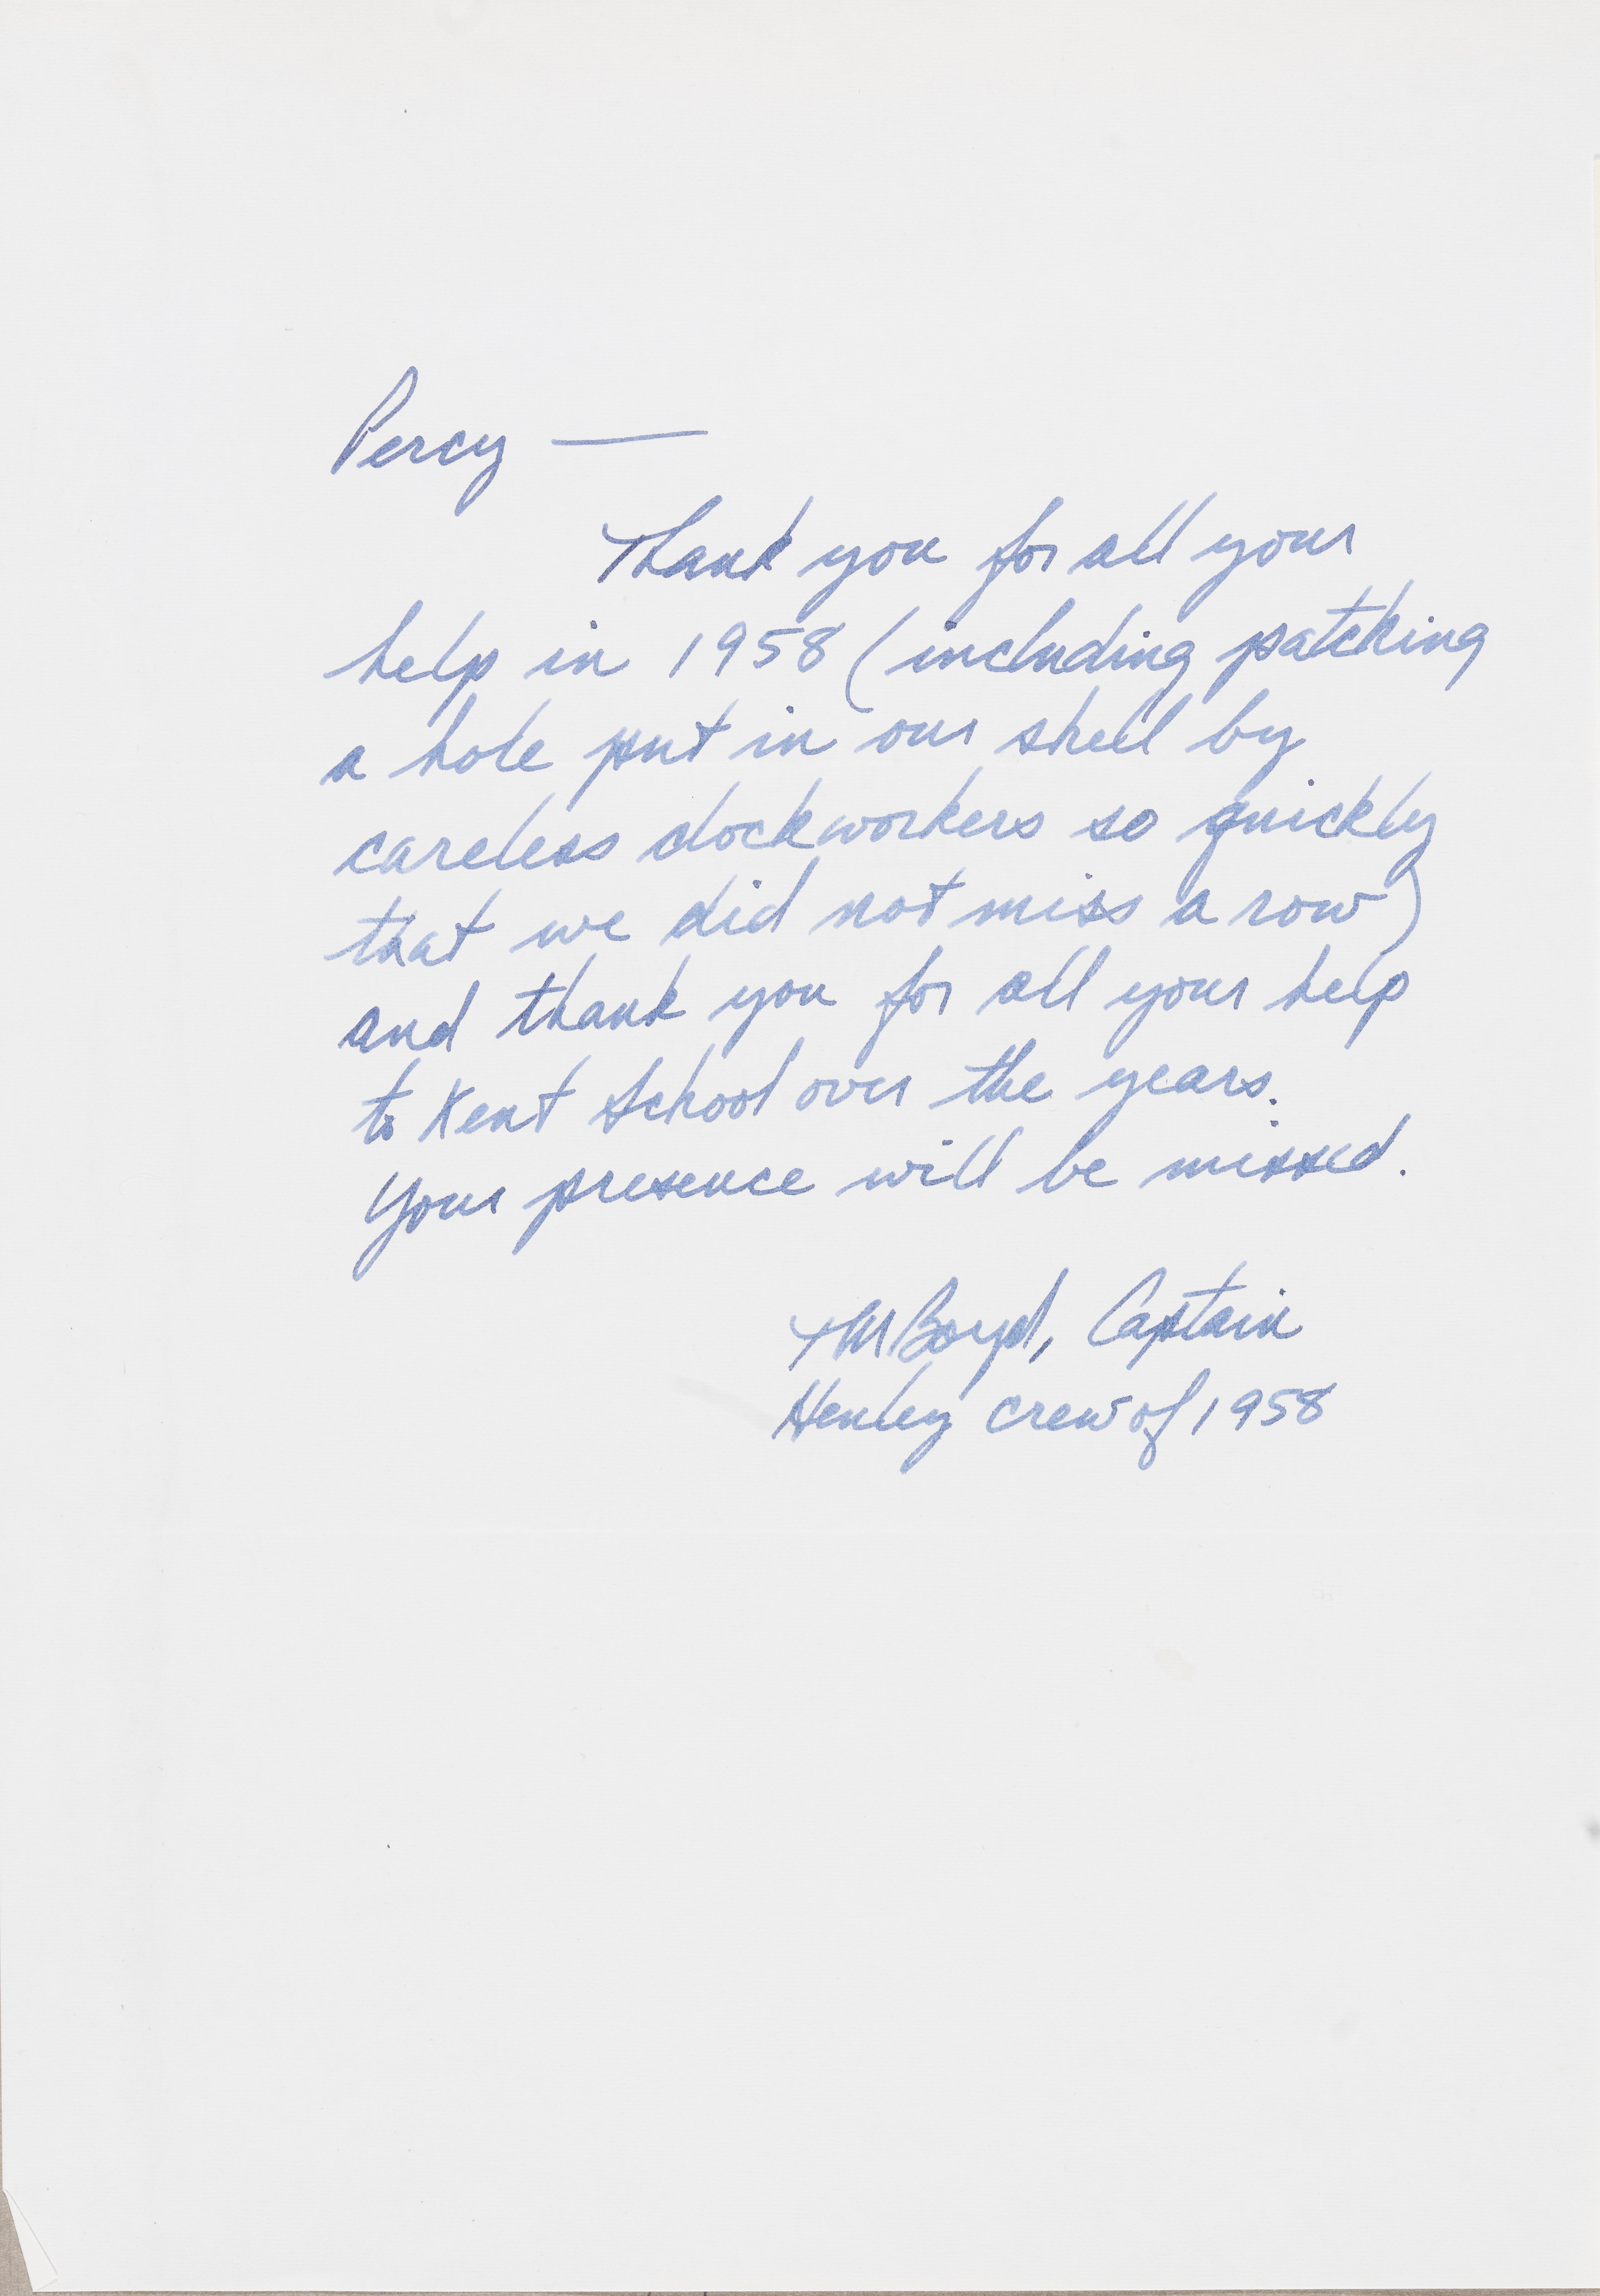 Percy —
Thank you for all your
help in 1958 (including patching
a hole put in our shell by
careless dockworkers so quickly
that we did not miss a row)
and thank you for all your help
to Kent School over the years.
Your presence will be missed.
TM Boyd, Captain
Henley crew of 1958